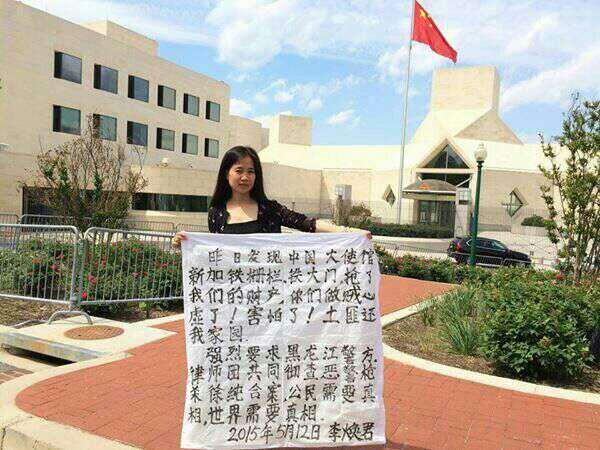 昨日发现,中国大使馆
新加铁栅栏,大门抢了
我们的财产,你们做贼心
虚了!害怕了!土匪还
我家园!
强烈要求黑龙江警方,
律师团共同彻查恶警枪
杀徐纯合案,公民需要真
相,世界需要真相.
2015年5月12日 李焕君